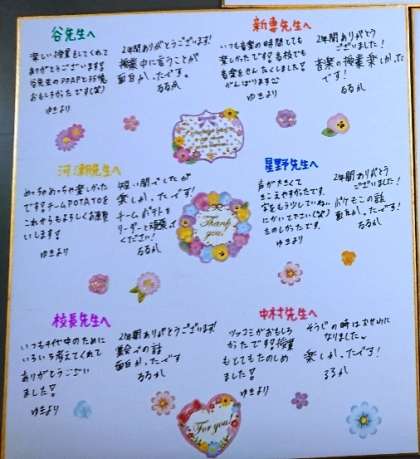 谷先生へ
楽しい授業をしてくれて
ありがとうございます!
谷先生のPPAPと35億
おもしろかったです(笑)
ゆきより
2年間ありがとうございます!
授業中に言うことが
面白かったです。
るるか
新妻先生へ
いつも音楽の時間とても
楽しかったです!高校でも
音楽をせんたくしました!
がんばります
ゆきより
2年間ありがとう
ございました!
音楽の授業楽しかった
です!
るるか
河瀬先生へ
めっちゃめっちゃ楽しかった
です!チームPOTATOを
これからもよろしくお願い
いします!
ゆきより
短い間でしたが
楽しかったです!
チームポテトを
リーダーとして頑張って
ください!
るるか
Thank
you!
星野先生へ
声が大きくて
きこえやすかったです。
字をもう少していねいに
かいて下さい(笑)
たのしかったです。
ゆきより
2年間ありがとう
ございました!
ポケモンの話
面白かったです!
るるか
校長先生へ
いつも千代中のために
いろいろ考えてくれて
ありがとうござい
ました!
ゆきより
2年間ありがとうございます!
集会での話
面白かったです
るるか
中村先生へ
ツッコミがおもしろ
かったです!授業
もとてもたのしめ
ました!
ゆきより
そうじの時はお世わに
なりました。
楽しかったです!
るるか
For you!